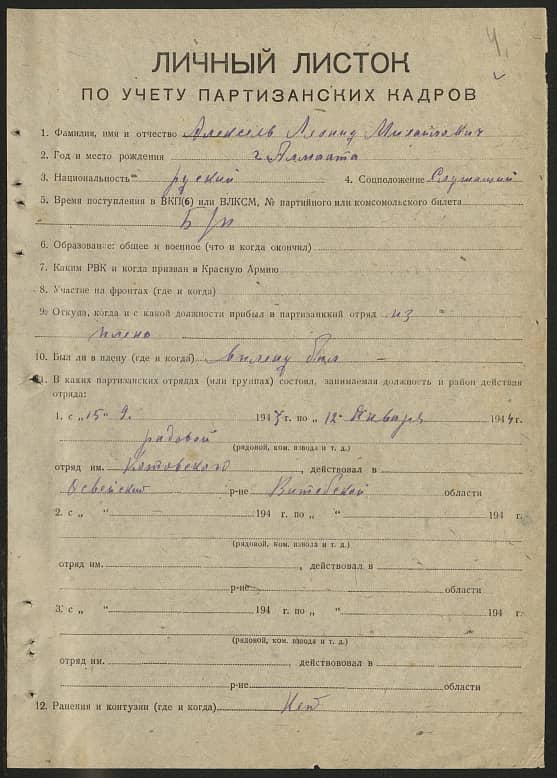 4.
ЛИЧНЫЙ ЛИСТОК
ПО УЧЕТУ ПАРТИЗАНСКИХ КАДРОВ
1. Фамилия, имя и отчество Алексеев Леонид Михайлович
2. Год и место рождения г. Алмаата
3. Национальность руский 4. Соцположение Служащий
5. Время поступления в ВКП(б) или ВЛКСМ, № партийного или комсомольского билета
Б/п
6. Образование: общее и военное (что и когда окончил)
7. Каким РВК и когда призван в Красную Армию
8. Участие на фронтах (где и когда)
9. Откуда, когда и с какой должности прибыл в партизанский отряд из
плена
10. Был ли в плену (где и когда) в плену был —
11. В каких партизанских отрядах (или группах) состоял, занимаемая должность и район действия
отряда:
1. с „15" 9. 1943 г. по „12" Января 1944 г.
рядовой
(рядовой, ком. взвода и т. д.)
отряд им. Котовского, действовал в
Освейский р-не Витебской области
2. с „ " 194 г. по „ " 194 г.
(рядовой, ком. взвода и т. д.)
отряд им. , действовал в
р-не области
3. с „ " 194 г. по „ " 194 г.
(рядовой, ком. взвода и т. д.)
отряд им. , действововал в
р-не области
12. Ранения и контузии (где и когда) Нет